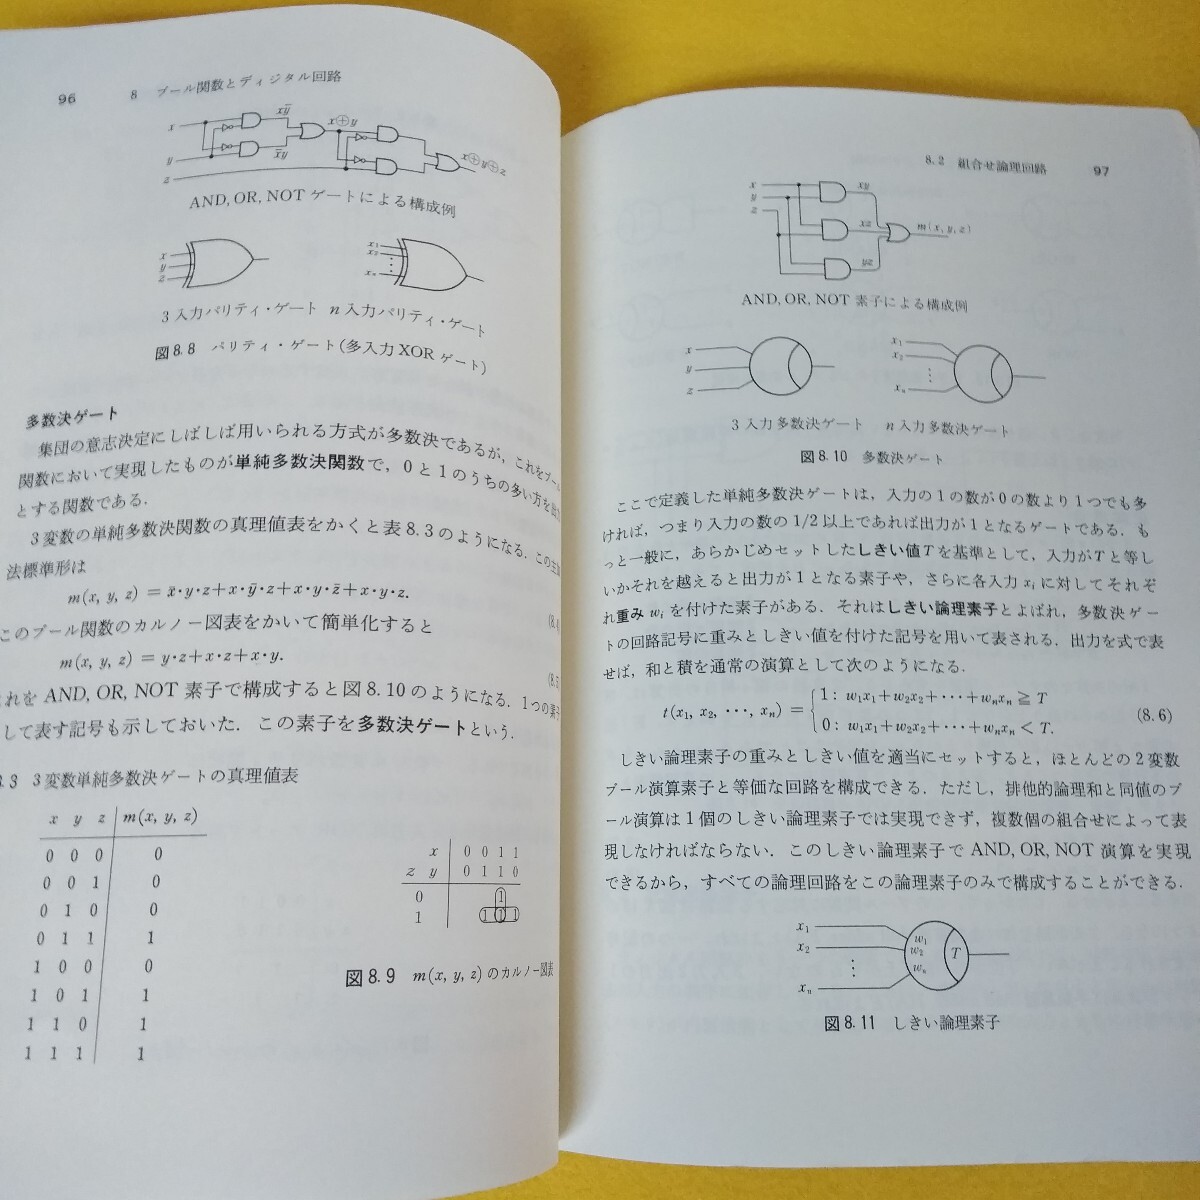 96 8 ブール関数とディジタル回路
x
y
z
xy̅
x̅y
x⊕y
x⊕y⊕z
AND, OR, NOT ゲートによる構成例
x
y
z
x₁
x₂
⋮
xₙ
3入力パリティ・ゲート n入力パリティ・ゲート
図8.8 パリティ・ゲート(多入力XORゲート)
多数決ゲート
集団の意志決定にしばしば用いられる方式が多数決であるが,これをブール
関数において実現したものが単純多数決関数で,0と1のうちの多い方を出力
とする関数である.
3変数の単純多数決関数の真理値表をかくと表8.3のようになる.この主
法標準形は
m(x, y, z) = x̅・y・z+x・y̅・z+x・y・z̅+x・y・z.
(8.4
このブール関数のカルノー図表をかいて簡単化すると
m(x, y, z) = y・z+x・z+x・y.
(8.5
れをAND, OR, NOT 素子で構成すると図8.10のようになる.1つの素子
して表す記号も示しておいた.この素子を多数決ゲートという.
8.3 3変数単純多数決ゲートの真理値表
x y z m(x, y, z)
0 0 0 0
0 0 1 0
0 1 0 0
0 1 1 1
1 0 0 0
1 0 1 1
1 1 0 1
1 1 1 1
x 0 0 1 1
z y 0 1 1 0
0 1
1 1 1 1
図8.9 m(x, y, z)のカルノー図表
8.2 組合せ論理回路 97
x
y
z
xy
xz
yz
m(x, y, z)
AND, OR, NOT 素子による構成例
x
y
z
x₁
x₂
⋮
xₙ
3入力多数決ゲート n入力多数決ゲート
図8.10 多数決ゲート
ここで定義した単純多数決ゲートは,入力の1の数が0の数より1つでも多
ければ,つまり入力の数の1/2以上であれば出力が1となるゲートである.も
っと一般に,あらかじめセットしたしきい値Tを基準として,入力がTと等し
いかそれを越えると出力が1となる素子や,さらに各入力xᵢに対してそれぞ
れ重みwᵢを付けた素子がある.それはしきい論理素子とよばれ,多数決ゲー
トの回路記号に重みとしきい値を付けた記号を用いて表される.出力を式で表
せば,和と積を通常の演算として次のようになる.
1: w₁x₁+w₂x₂+⋯+wₙxₙ ≧ T
t(x₁, x₂, ⋯, xₙ) = { (8.6)
0: w₁x₁+w₂x₂+⋯+wₙxₙ < T.
しきい論理素子の重みとしきい値を適当にセットすると,ほとんどの2変数
ブール演算素子と等価な回路を構成できる.ただし,排他的論理和と同値のブ
ール演算は1個のしきい論理素子では実現できず,複数個の組合せによって表
現しなければならない.このしきい論理素子でAND, OR, NOT 演算を実現
できるから,すべての論理回路をこの論理素子のみで構成することができる.
x₁
x₂
⋮
xₙ
w₁
w₂
wₙ
T
図8.11 しきい論理素子